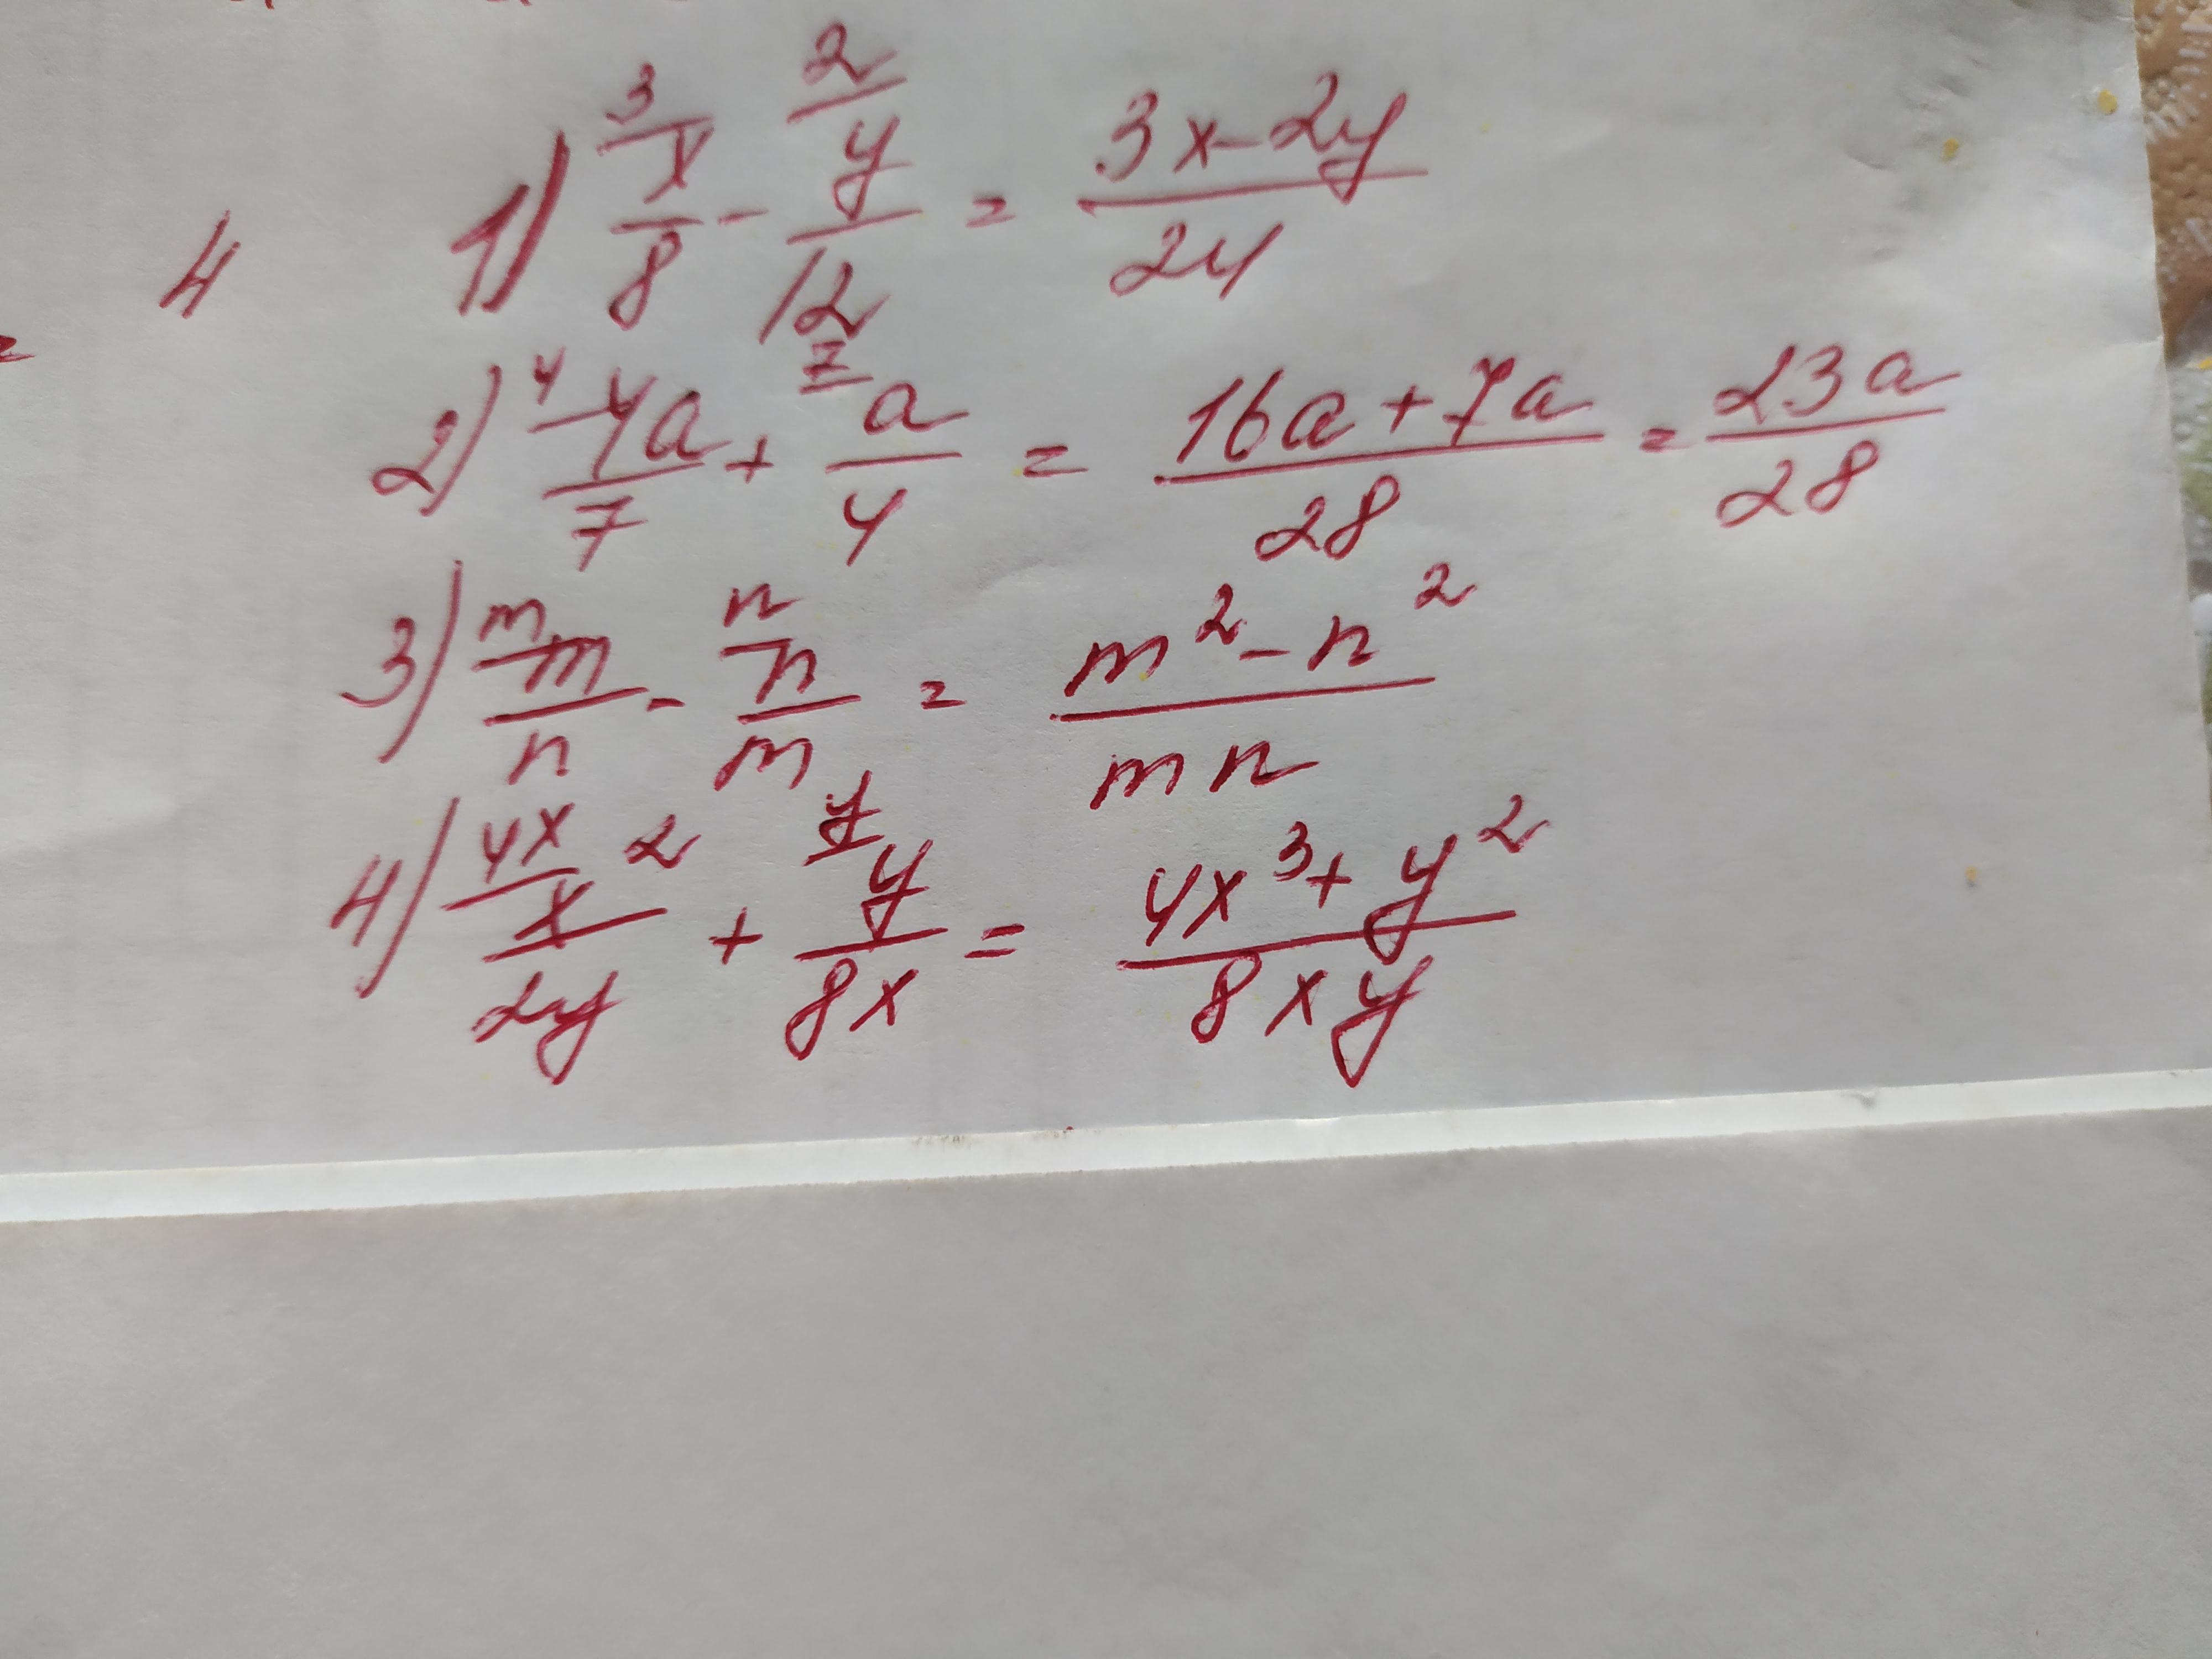 4 1) ³x/8 - ²y/12 = 3x-2y/24
2) ⁴4a/7 + ⁷a/4 = 16a+7a/28 = 23a/28
3) ᵐm/n - ⁿn/m = m²-n²/mn
4) ⁴ˣx²/2y + ʸy/8x = 4x³+y²/8xy